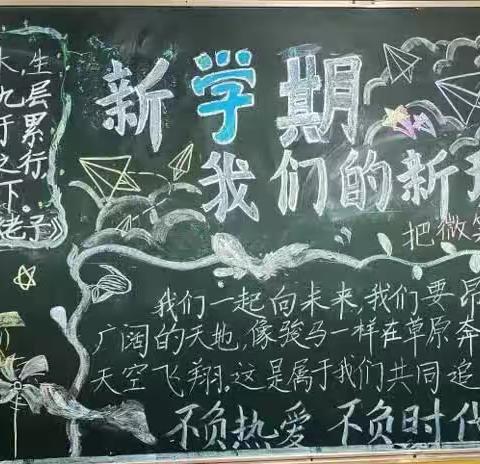 木,生
九层
于累
之行
下。
老子》
新学期
我们的新
把微笑
我们一起向未来,我们要昂
广阔的天地,像骏马一样在草原奔
天空飞翔。这是属于我们共同追
不负热爱 不负时代